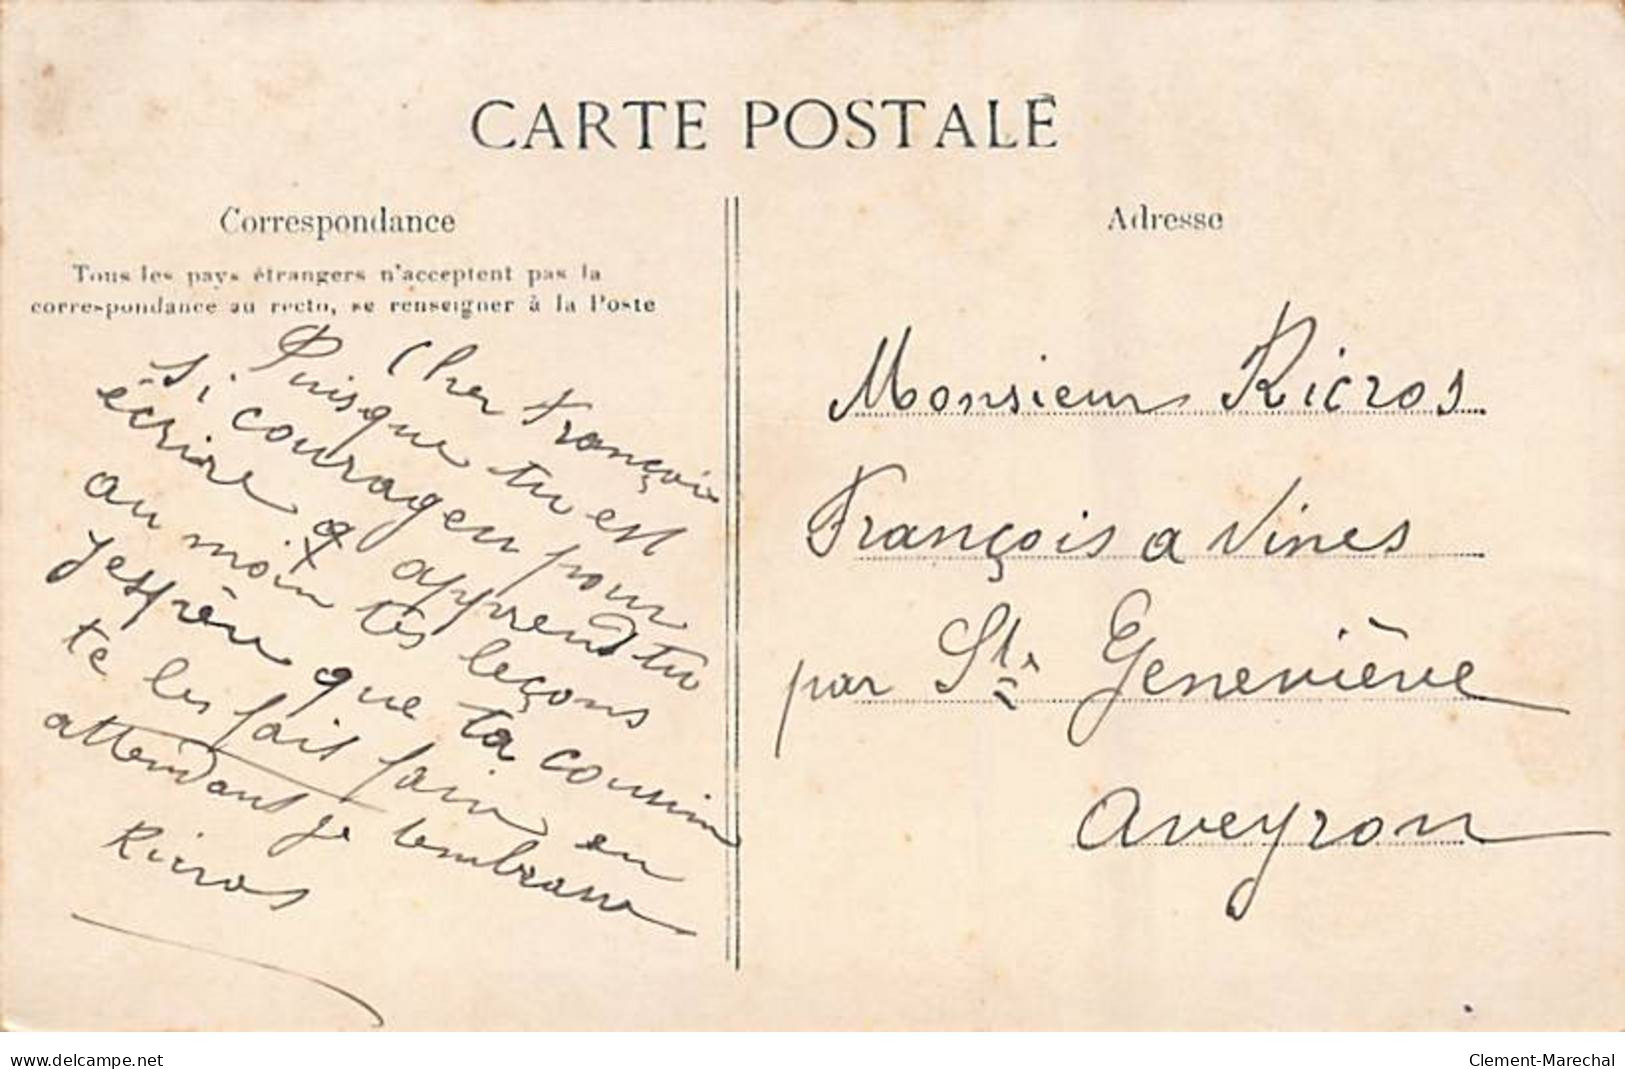 CARTE POSTALE
Correspondance
Tous les pays étrangers n'acceptent pas la
correspondance au recto, se renseigner à la Poste
Cher François
Puisque tu est
si courageu pour
écrire apprend tu
au moin tes leçons
Jespère que ta cousine
te les fait faire en
attendant je tembrasse
Ricros
Adresse
Monsieur Ricros
François a Vines
par Ste Geneviève
Aveyron
www.delcampe.net
Clement-Marechal